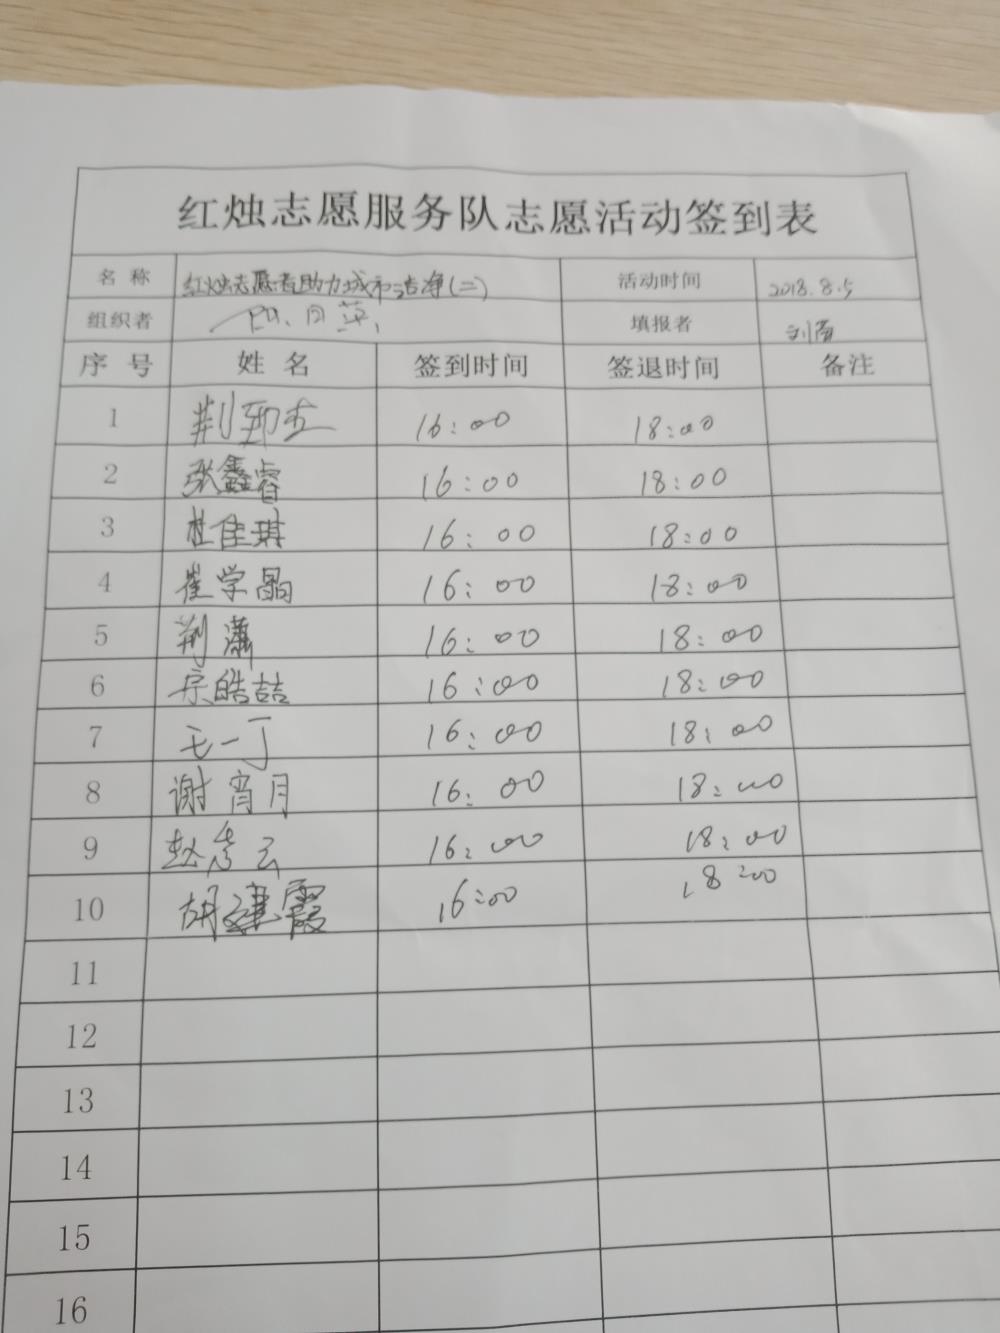 红烛志愿服务队志愿活动签到表
名称 红烛志愿者助力城市洁净(二) 活动时间 2018.8.5
组织者 填报者 刘
序号 姓名 签到时间 签退时间 备注
1 荆 16:00 18:00
2 张鑫睿 16:00 18:00
3 杜佳琪 16:00 18:00
4 崔学晶 16:00 18:00
5 荆潇 16:00 18:00
6 宗皓喆 16:00 18:00
7 王一丁 16:00 18:00
8 谢宵月 16:00 18:00
9 赵彦云 16:00 18:00
10 胡建霞 16:00 18:00
11
12
13
14
15
16